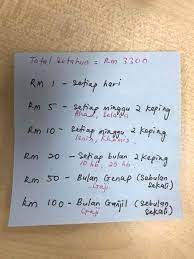 Total Setahun = RM 3300
RM 1 - Setiap hari
RM 5 - Setiap minggu 2 keping
Ahad, Selasa
RM 10 - Setiap minggu 2 keping
Isnin, Khamis
RM 20 - Setiap bulan 2 keping
10 hb, 25 hb
RM 50 - Bulan Genap (Sebulan
Sekali)
Gaji
RM 100 - Bulan Ganjil (Sebulan
Sekali)
Gaji